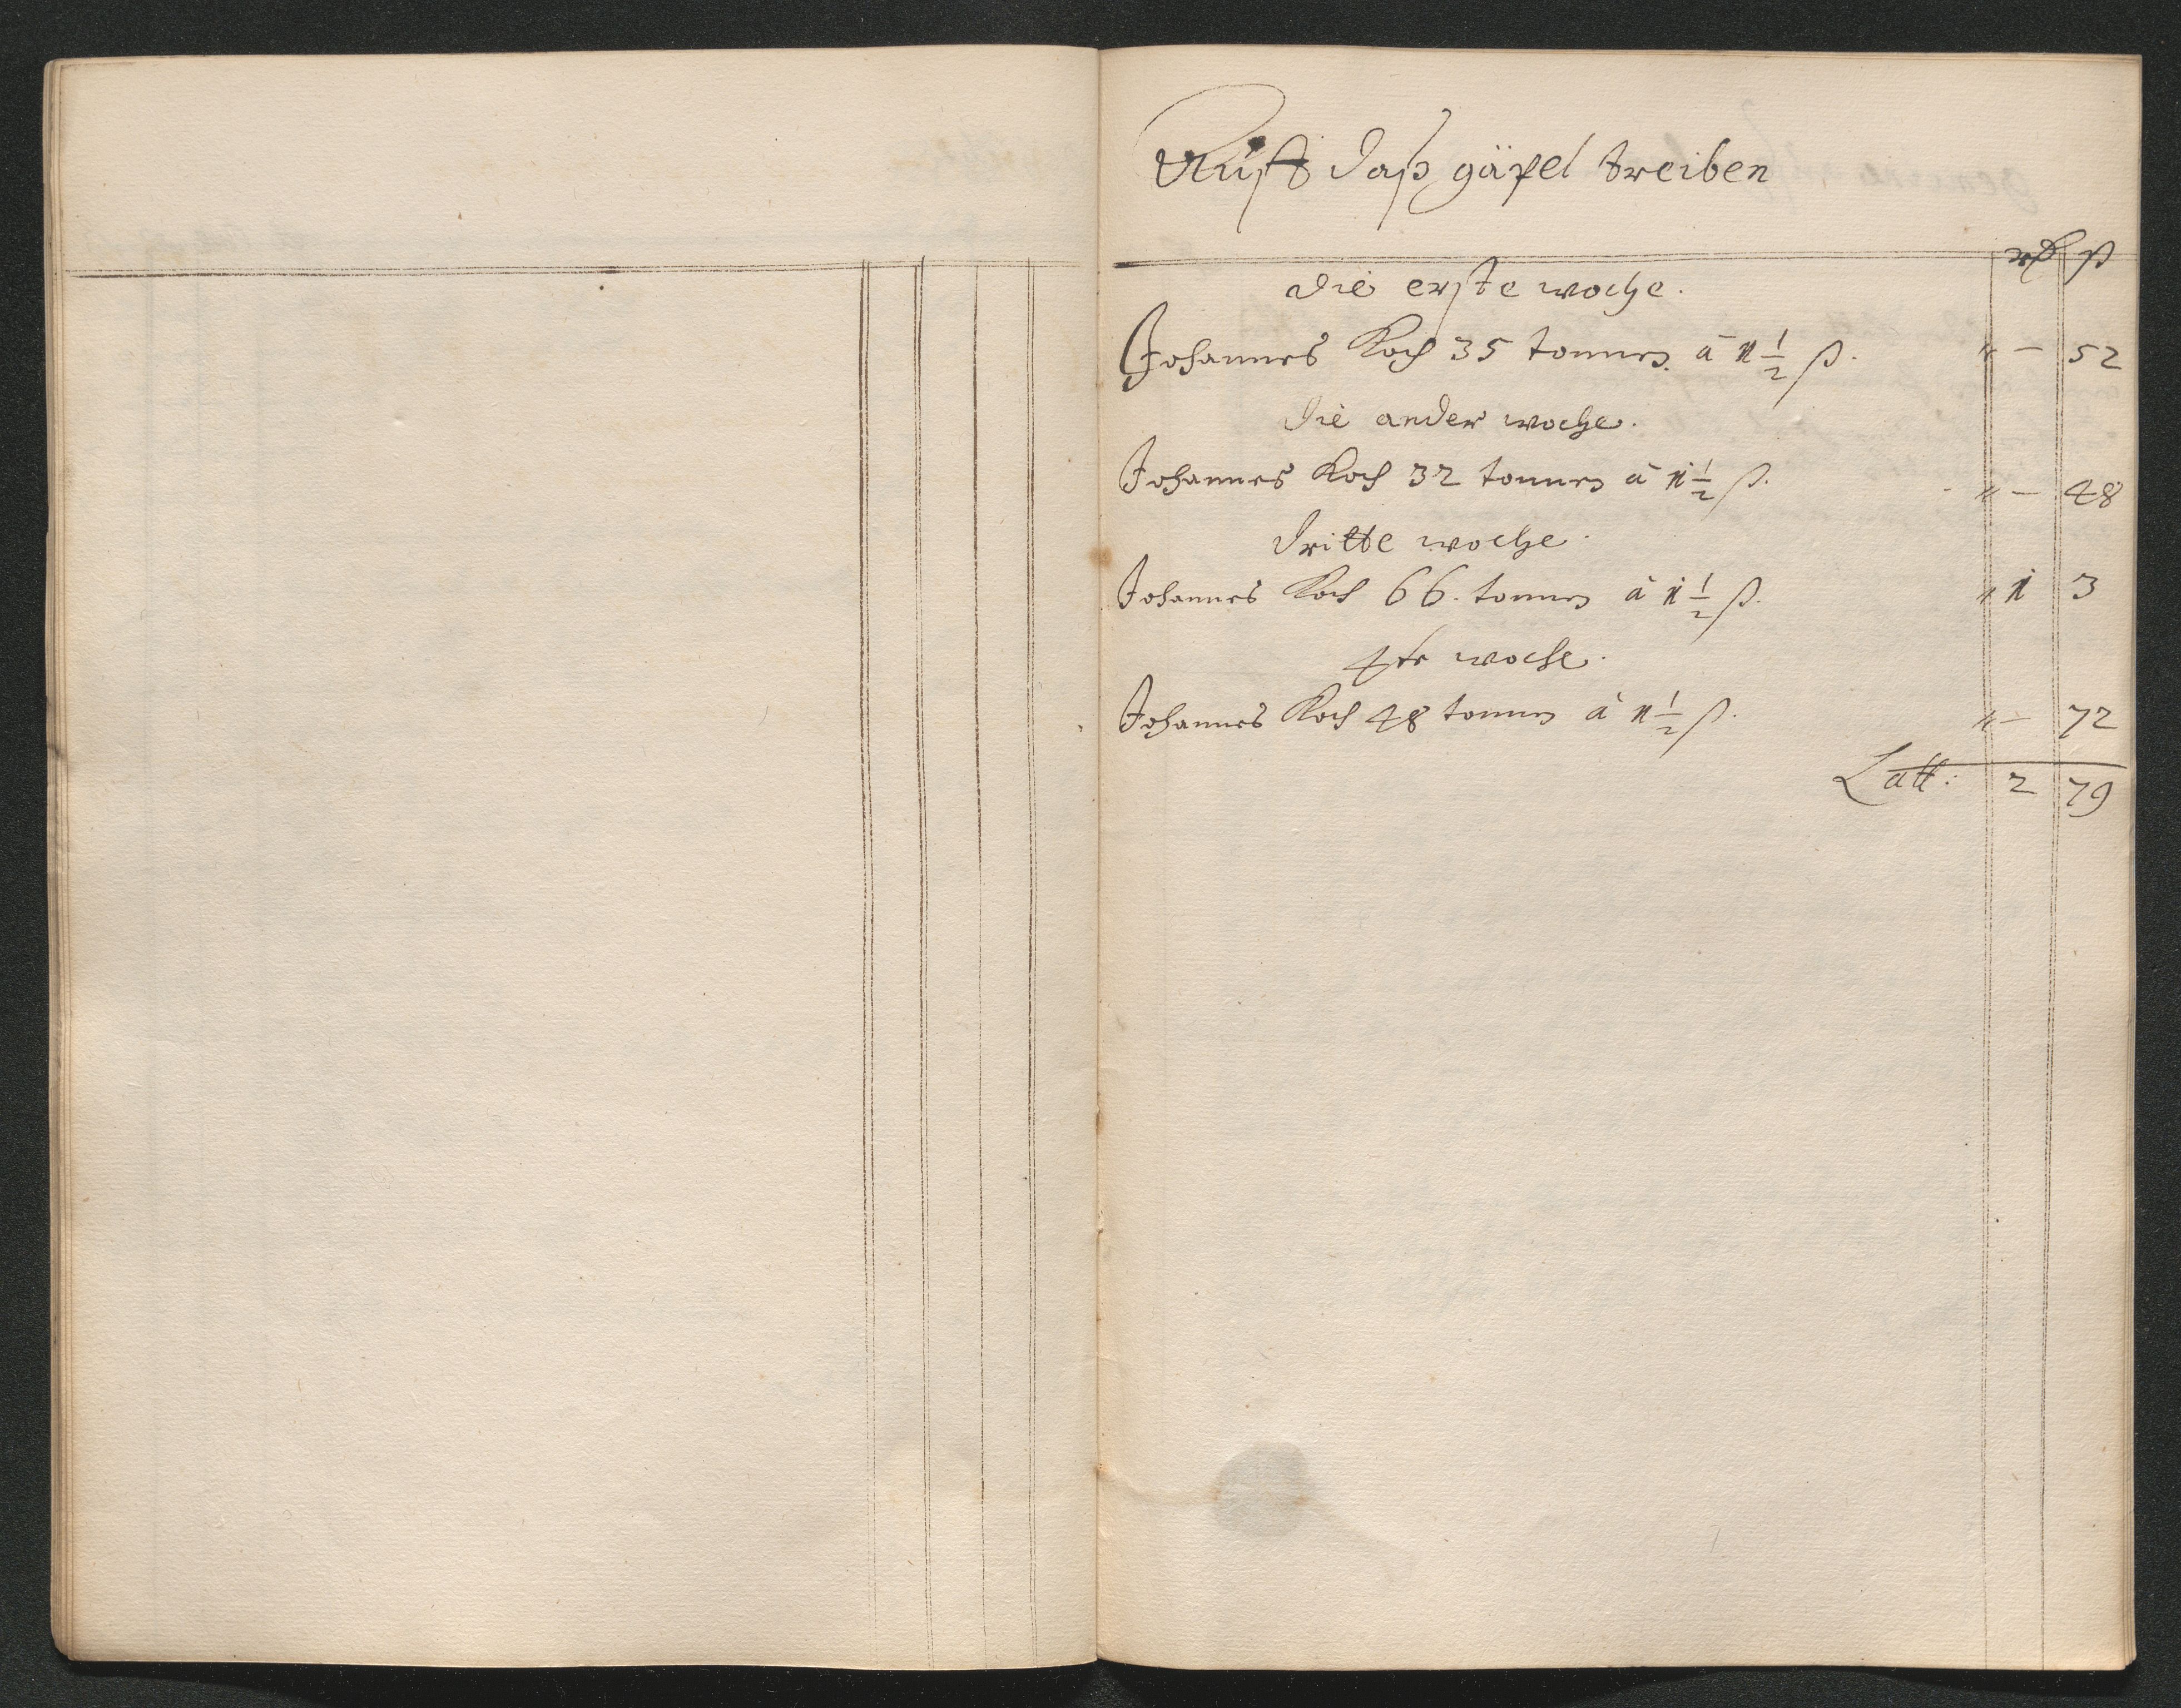 Auff daß gäpel treiben
rtl ß
die erste woche.
Johannes Koch 35 tonnen à 1 1/2 ß. " — 52
die ander woche.
Johannes Koch 32 tonnen à 1 1/2 ß. " — 48
dritte woche.
Johannes Koch 66. tonnen à 1 1/2 ß. " 1 3
4te woche.
Johannes Koch 48 tonnen à 1 1/2 ß. " — 72
Latt: 2 79